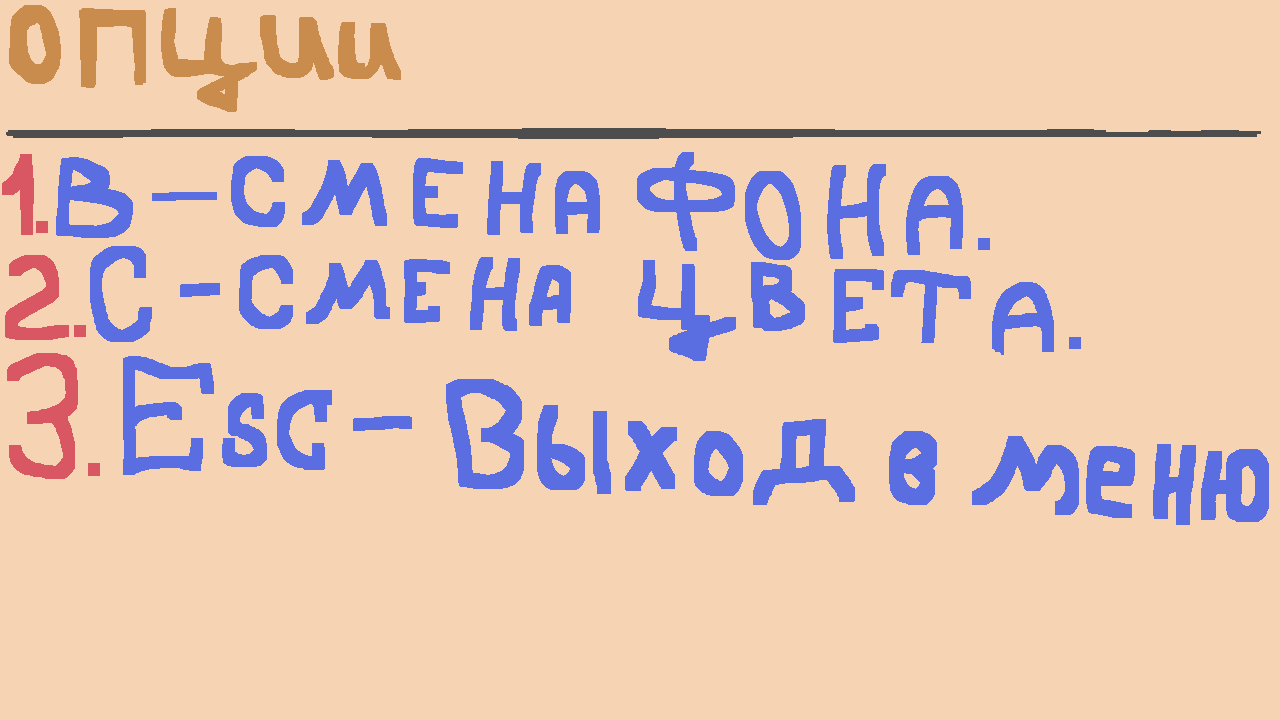 опции
1. B – СМЕНА ФОНА.
2. C – СМЕНА ЦВЕТА.
3. Esc – Выход в меню